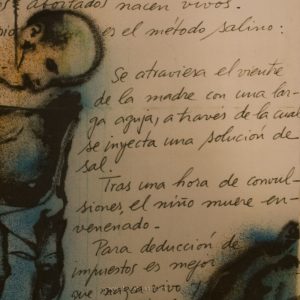 abortados nacen vivos.
es el método salino:
Se atraviesa el vientre
de la madre con una lar-
ga aguja, a través de la cual
se inyecta una solución de
sal.
Tras una hora de convul-
siones, el niño muere en-
venenado.
Para deducción de
impuestos es mejor
que nazca vivo